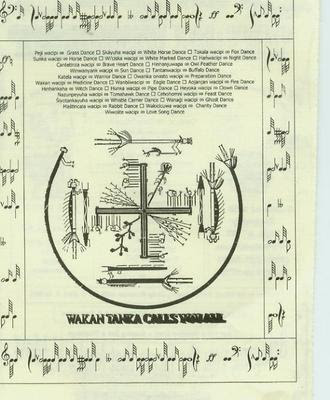 Peji wacipi ∞ Grass Dance ☐ Sisiyuha wacipi ∞ White Horse Dance ☐ Tokala wacipi ∞ Fox Dance
Sunka wacipi ∞ Horse Dance ☐ Wi'ciska wacipi ∞ White Marked Dance ☐ Hanwacipi ∞ Night Dance
Cantetinza wacipi ∞ Brave Heart Dance ☐ Hinhansuwapa ∞ Owl Feather Dance
Winwanyank wacipi ∞ Sun Dance ☐ Tantanwacipi ∞ Buffalo Dance
Katela wacipi ∞ Warrior Dance ☐ Owanka onasto wacipi ∞ Preparation Dance
Wakan wacipi ∞ Medicine Dance ☐ Wanbliwacipi ∞ Eagle Dance ☐ Anjanjan wacipi ∞ Fire Dance
Hanhankaha ∞ Witch Dance ☐ Hunka wacipi ∞ Pipe Dance ☐ Heyoka wacipi ∞ Clown Dance
Natunpeyuha wacipi ∞ Tomahawk Dance ☐ Cehohomni wacipi ∞ Feast Dance
Siyotankayuha wacipi ∞ Whistle Carrier Dance ☐ Wanagi wacipi ∞ Ghost Dance
Mastincala wacipi ∞ Rabbit Dance ☐ Wakicluwa wacipi ∞ Charity Dance
Wiwoste wacipi ∞ Love Song Dance
WAKAN TANKA CALLS YOU ALL